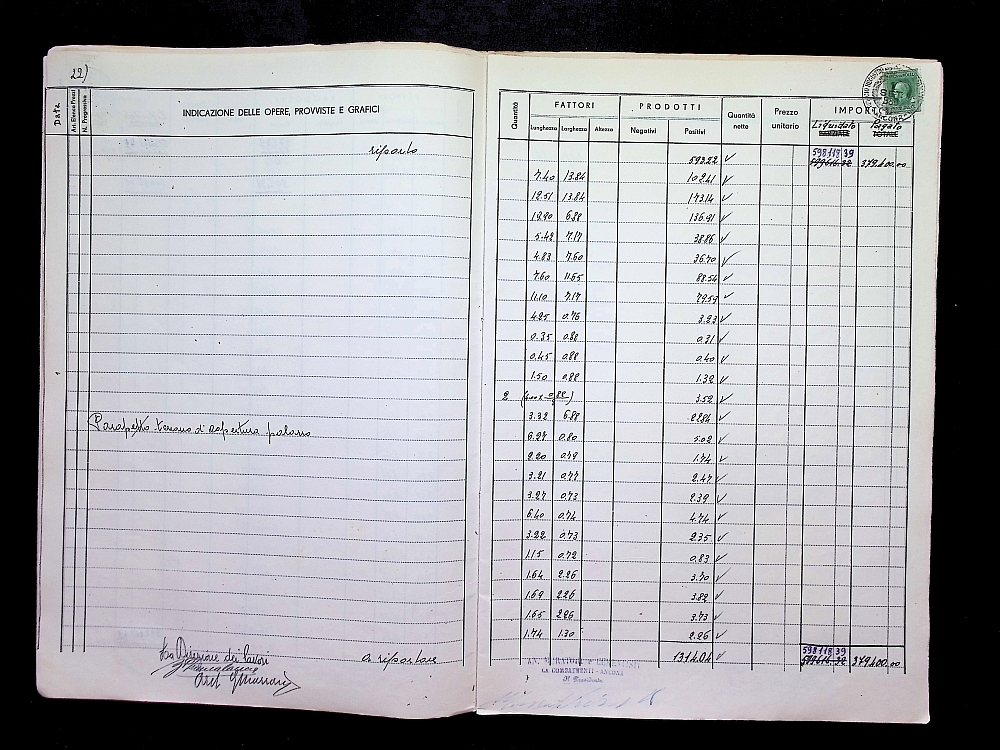 22)
Data
An. Elenco Prezzi
N. Progressivo
INDICAZIONE DELLE OPERE, PROVVISTE E GRAFICI
riporto
Parapetto terrazzo di copertura palazzo
La Direzione dei lavori
a riportare
Quantità
FATTORI
PRODOTTI
Quantità nette
Prezzo unitario
IMPORTO
Lunghezza Larghezza Altezza
Negativi Positivi
Liquidato Pagato
PARZIALE TOTALE
598118 39
593.22 ✓ 379.400.00
7.40 13.84 102.41 ✓
12.51 13.84 173.14 ✓
19.90 6.88 136.91 ✓
5.42 7.17 38.86 ✓
4.83 7.60 36.70 ✓
7.60 11.65 88.54 ✓
11.10 7.17 79.59 ✓
4.25 0.76 3.23 ✓
0.35 0.88 0.31 ✓
0.45 0.88 0.40 ✓
1.50 0.88 1.32 ✓
2 (2.00x0.88) 3.52 ✓
3.32 6.88 22.84 ✓
6.27 0.80 5.02 ✓
2.20 0.79 1.74 ✓
3.21 0.77 2.47 ✓
3.27 0.73 2.39 ✓
6.40 0.74 4.74 ✓
3.22 0.73 2.35 ✓
1.15 0.72 0.83 ✓
1.64 2.26 3.70 ✓
1.69 2.26 3.82 ✓
1.65 2.26 3.73 ✓
1.74 1.30 2.26 ✓
598118 39
1314.04 ✓ 379.400.00
AN. MURATORI E CEMENTISTI
EX COMBATTENTI - ANCONA
Il Presidente